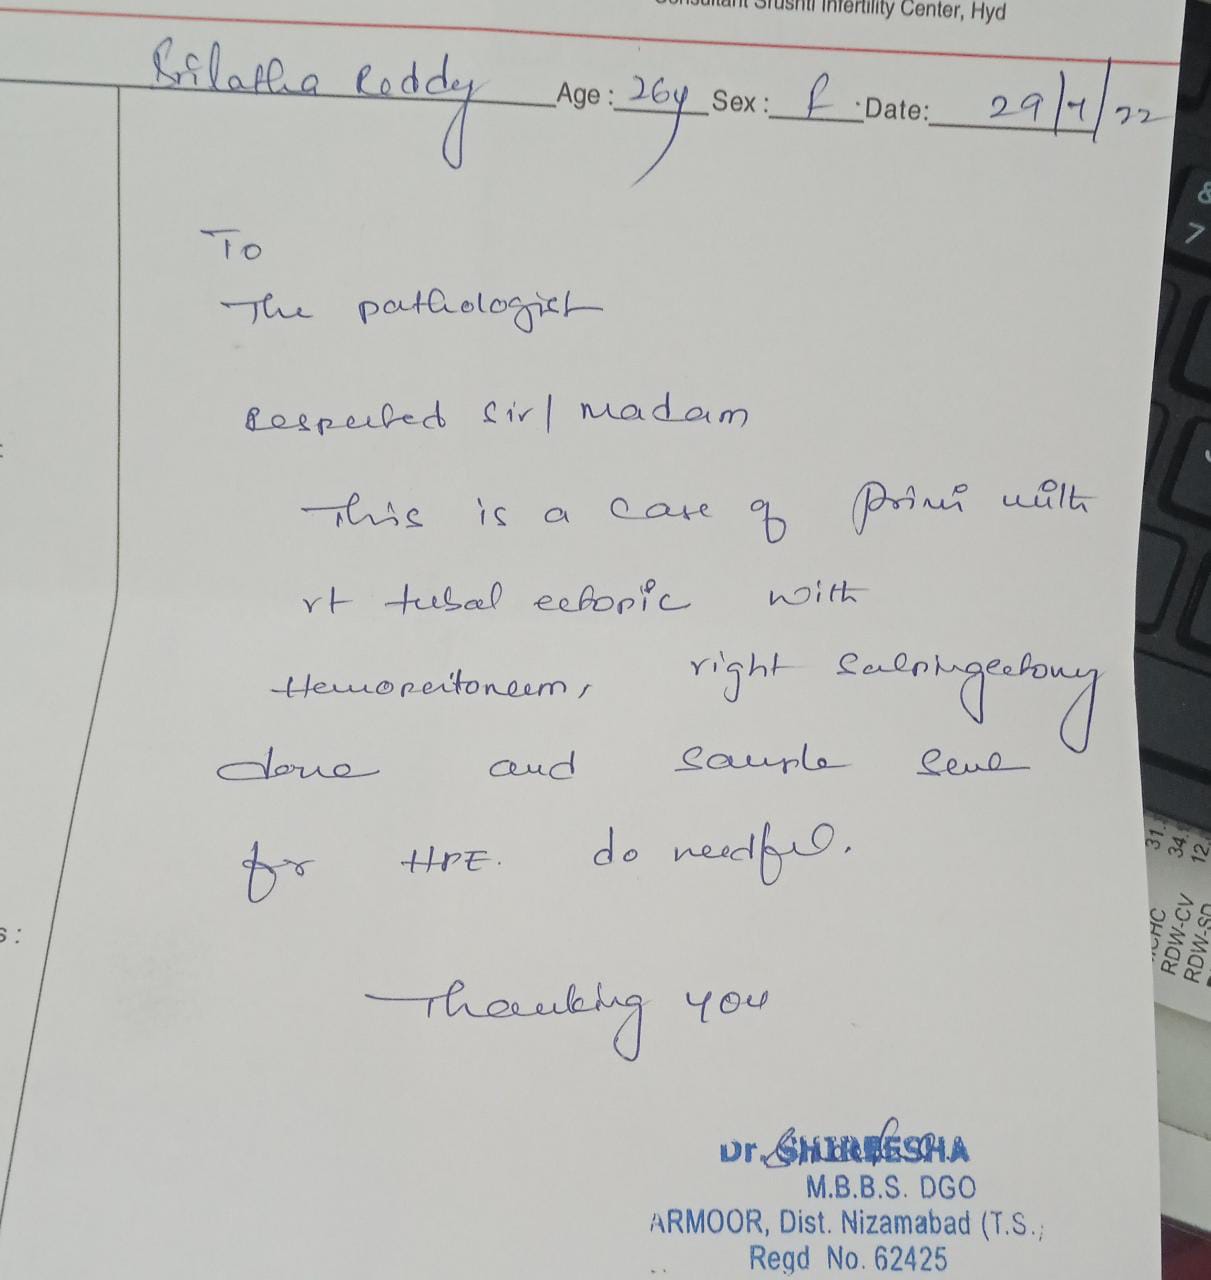 Consultant Srushti Infertility Center, Hyd
Srilatha Reddy Age: 26y Sex: F Date: 29/7/22
To
The pathologist
Respected Sir/ Madam
This is a case of primi with
rt tubal ectopic with
Hemoperitoneum, right Salpingectomy
done and sample sent
for HPE. do needful.
Thanking you
Dr. SHIREESHA
M.B.B.S. DGO
ARMOOR, Dist. Nizamabad (T.S.)
Regd No. 62425
8
7
31.
34.
12.
RDW-CV
RDW-SD